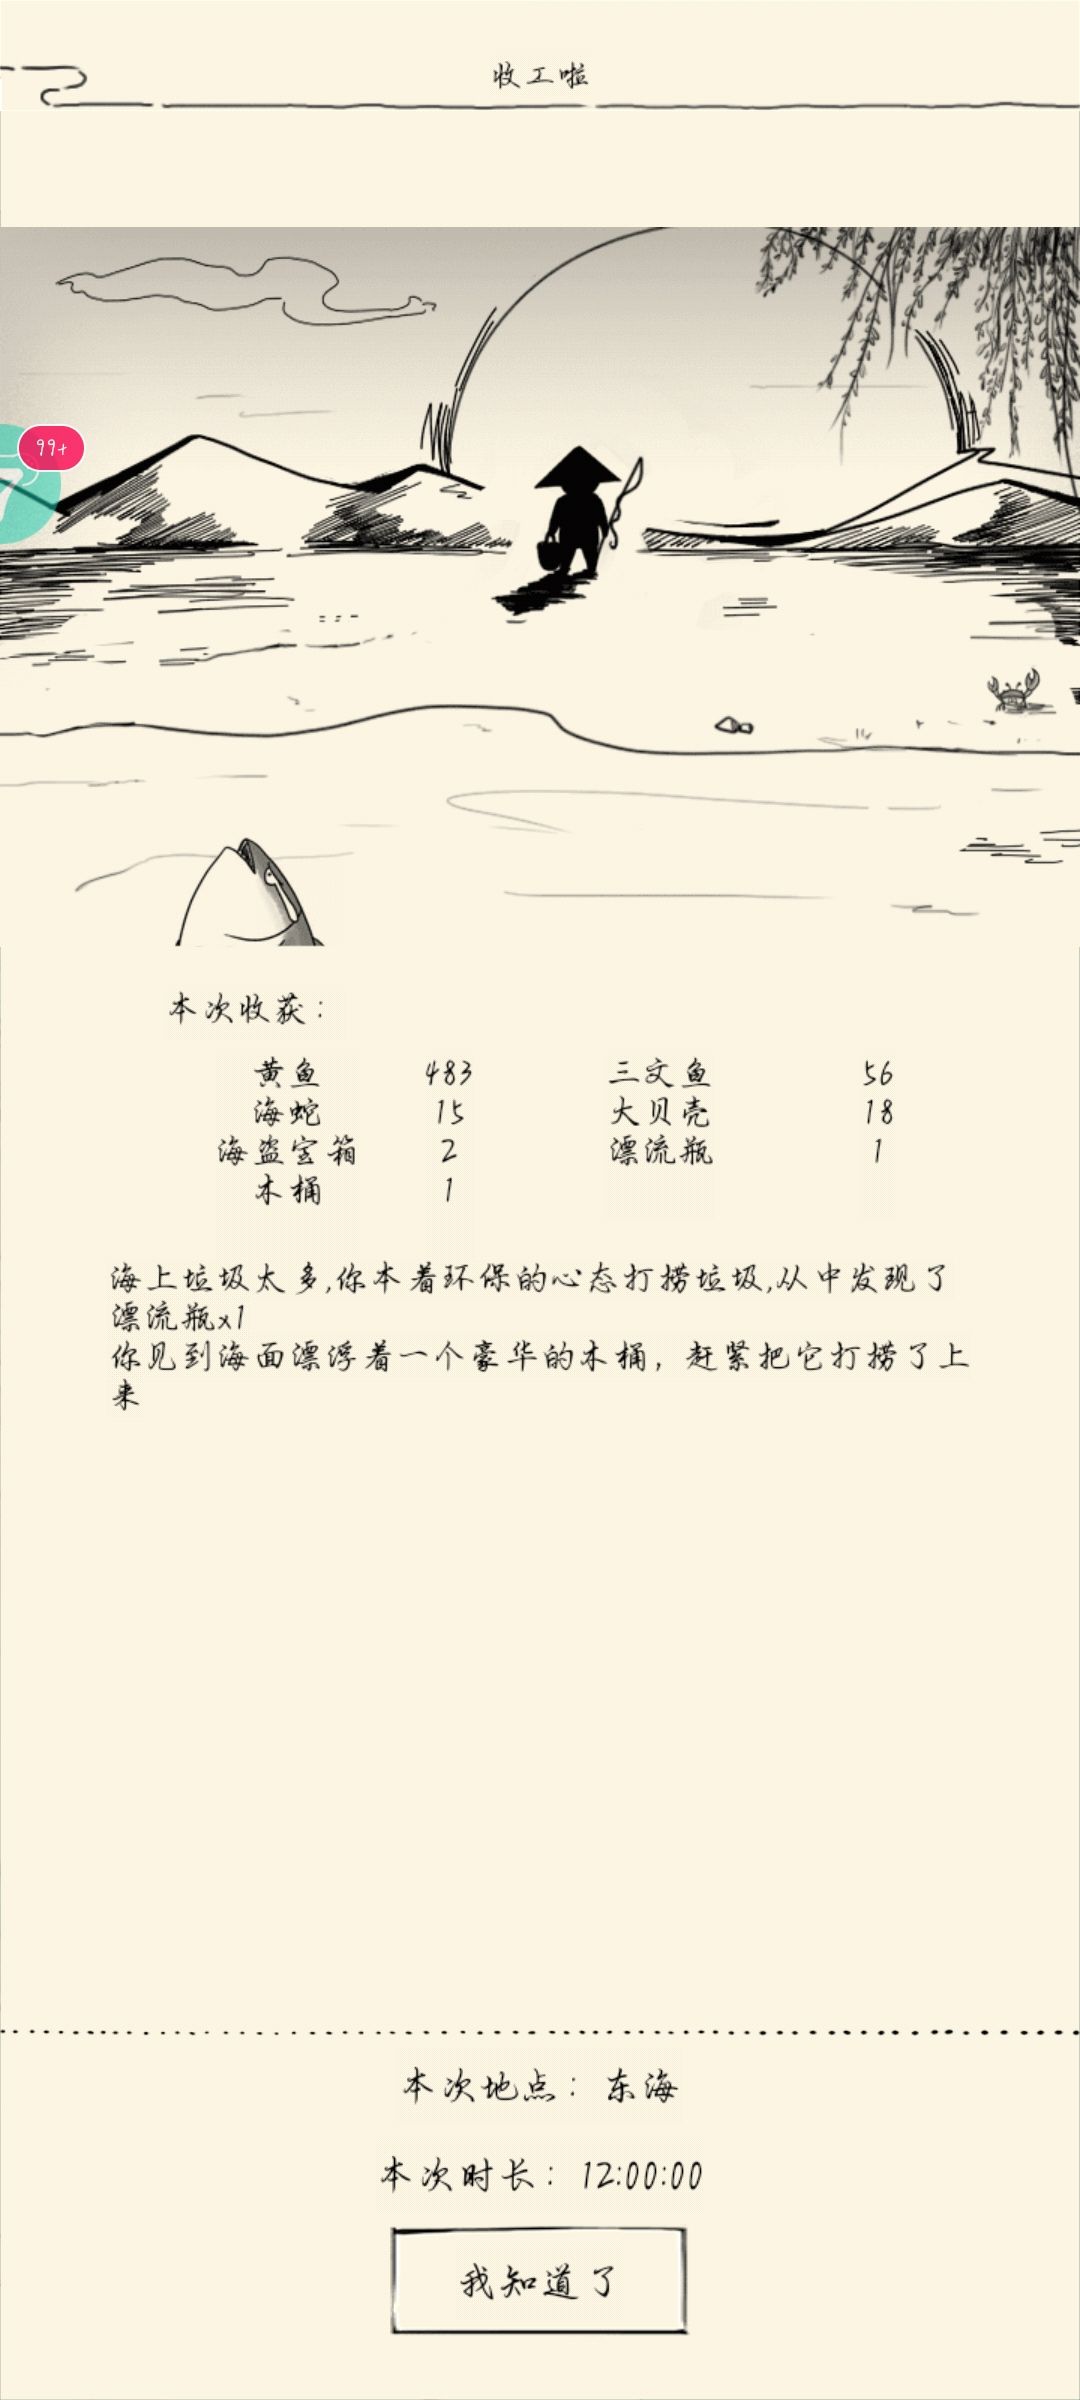 收工啦
99+
本次收获：
黄鱼 483 三文鱼 56
海蛇 15 大贝壳 18
海盗宝箱 2 漂流瓶 1
木桶 1
海上垃圾太多,你本着环保的心态打捞垃圾,从中发现了
漂流瓶x1
你见到海面漂浮着一个豪华的木桶，赶紧把它打捞了上
来
本次地点：东海
本次时长：12:00:00
我知道了